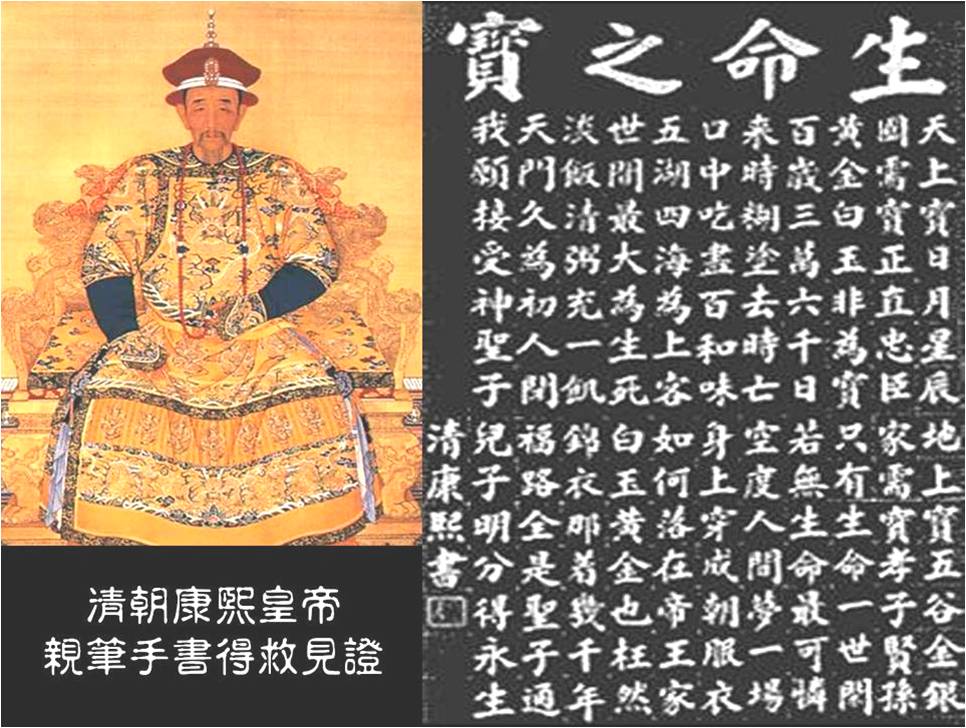 生命之寶
天上寶日月星辰地上寶五谷金銀
國需寶正直忠臣家需寶孝子賢孫
黃金白玉非為寶只有生命一世閑
百歲三萬六千日若無生命最可憐
來時糊塗去時亡空度人間夢一場
口中吃盡百和味身上穿成朝服衣
五湖四海為上客如何落在帝王家
世間最大為生死白玉黃金也枉然
淡飯清粥充一飢錦衣那着幾千年
天門久為初人閉福路全是聖子通
我願接受神聖子兒子明分得永生
清康熙書
清朝康熙皇帝
親筆手書得救見證